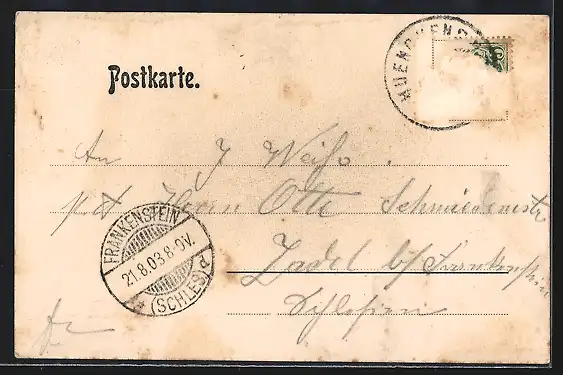 Postkarte.
An J Weiß.
Herrn Otto Schmiedemstr
Zadel b/ Frankenstein
Schlesien
FRANKENSTEIN
21.8.03 8-9V.
(SCHLES) d